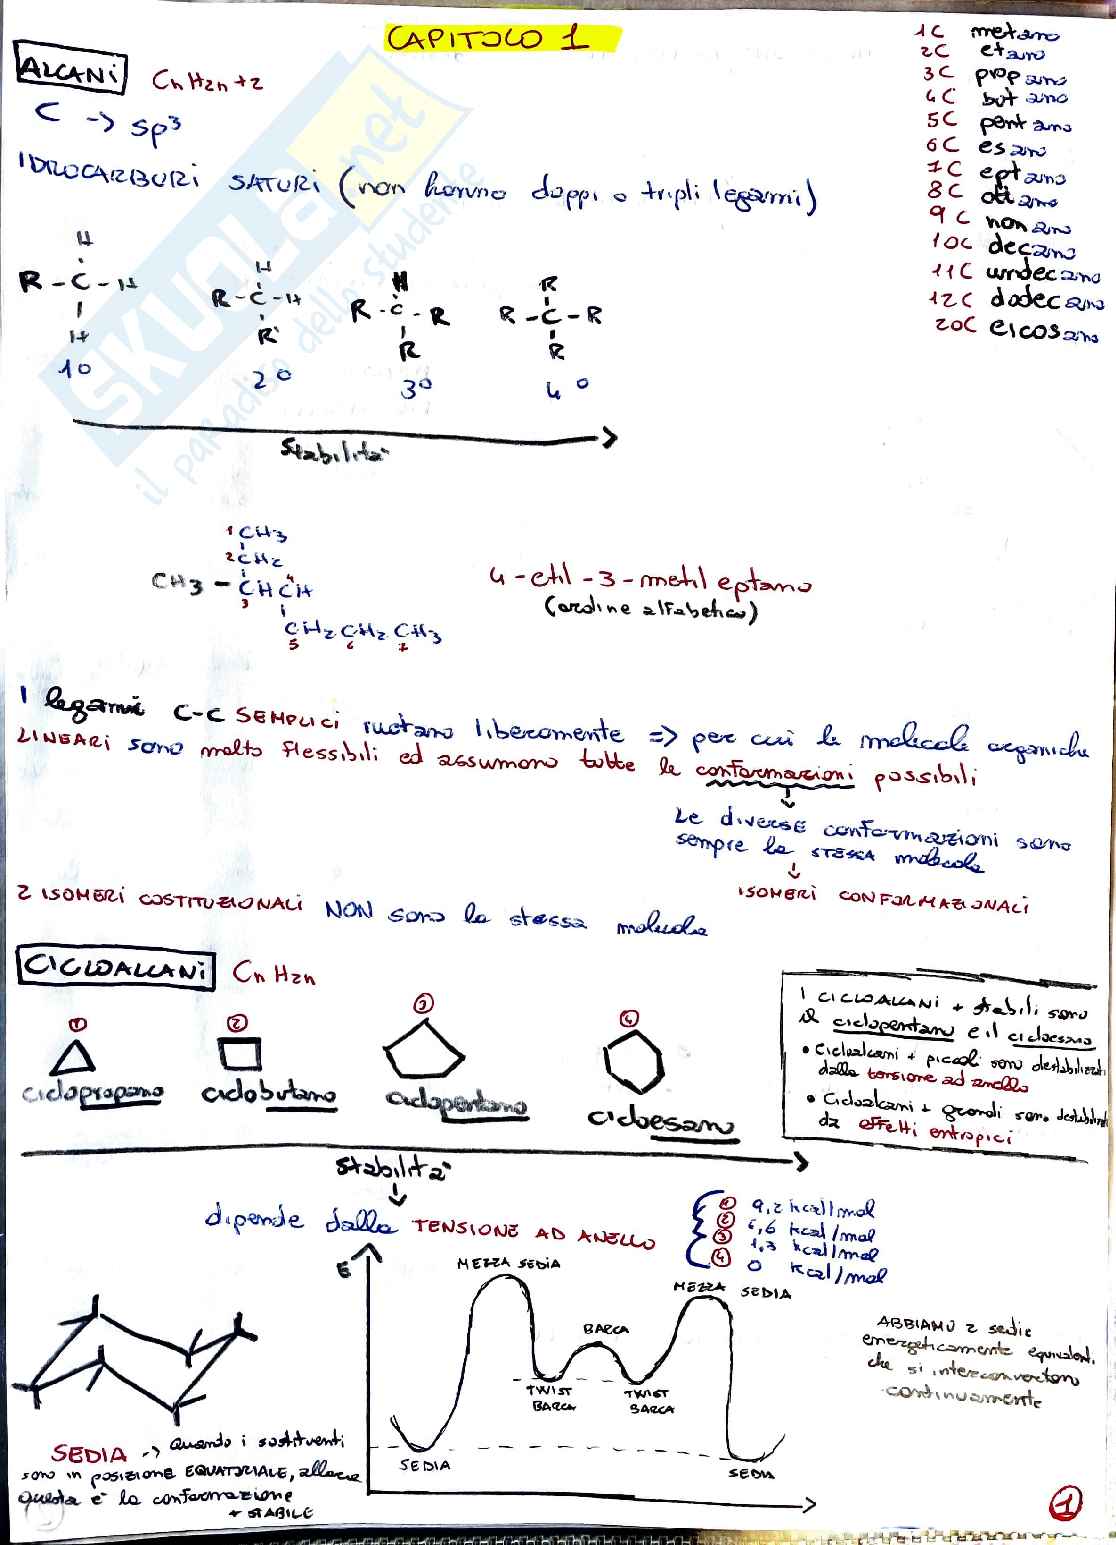 CAPITOLO 1
ALCANI CnH2n+2
C -> sp³
IDROCARBURI SATURI (non hanno doppi o tripli legami)
1C metano
2C etano
3C propano
4C butano
5C pentano
6C esano
7C eptano
8C ottano
9C nonano
10C decano
11C undecano
12C dodecano
20C eicosano
SKUOLA.net
il paradiso dello studente
H
R - C - H
H
1°
H
R - C - H
R
2°
H
R - C - R
R
3°
R
R - C - R
R
4°
Stabilità
1 CH3
2 CH2
CH3 - CH CH
3 4
CH2 CH2 CH3
5 6 7
4-etil-3-metil eptano
(ordine alfabetico)
I legami C-C SEMPLICI ruotano liberamente => per cui le molecole organiche
LINEARI sono molto flessibili ed assumono tutte le conformazioni possibili
Le diverse conformazioni sono
sempre la STESSA molecola
ISOMERI CONFORMAZIONALI
2 ISOMERI COSTITUZIONALI NON sono la stessa molecola
CICLOALCANI CnH2n
1 2 3 4
ciclopropano ciclobutano ciclopentano cicloesano
I CICLOALCANI + stabili sono
il ciclopentano e il cicloesano
• Cicloalcani + piccoli sono destabilizzati
dalla tensione ad anello
• Cicloalcani + grandi sono destabilizzati
da effetti entropici
Stabilità
dipende dalla TENSIONE AD ANELLO
1 9,2 kcal/mol
2 6,6 kcal/mol
3 1,3 kcal/mol
4 0 kcal/mol
E
MEZZA SEDIA
MEZZA SEDIA
BARCA
TWIST
BARCA
TWIST
BARCA
SEDIA
SEDIA
ABBIAMO 2 sedie
energeticamente equivalenti
che si interconvertono
continuamente
SEDIA -> Quando i sostituenti
sono in posizione EQUATORIALE, allora
questa è la conformazione
+ STABILE
1